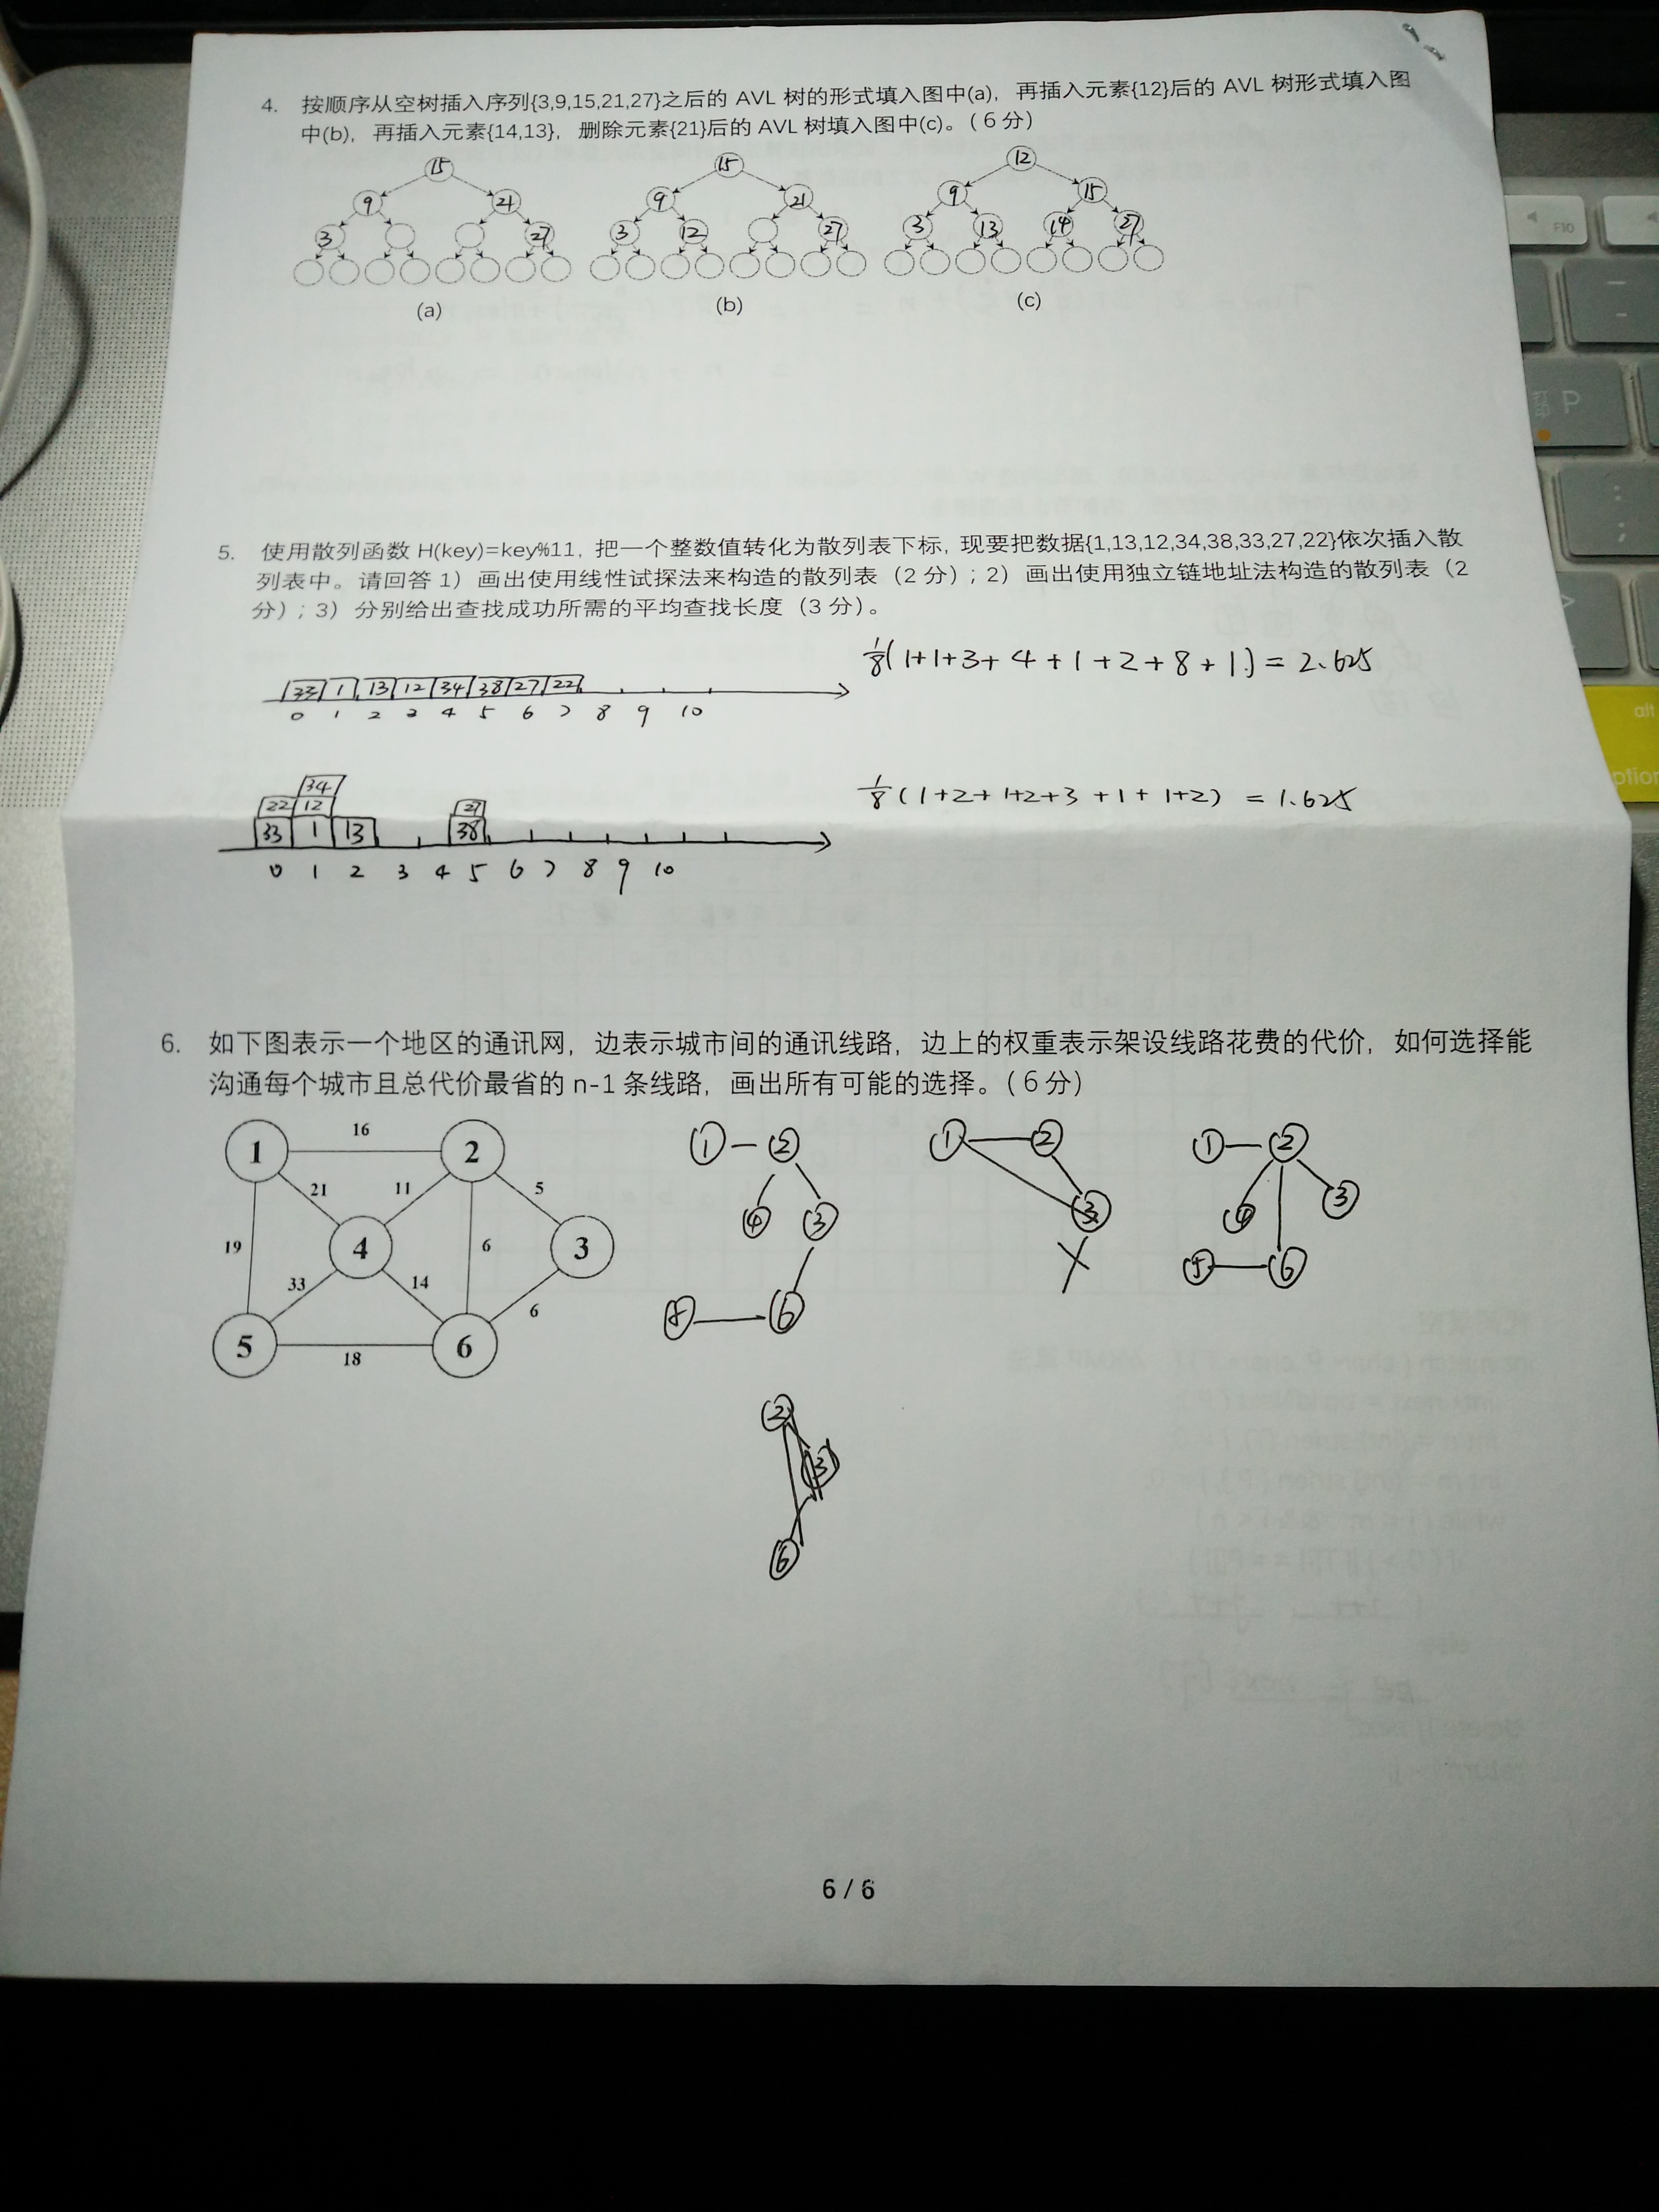 4. 按顺序从空树插入序列{3,9,15,21,27}之后的 AVL 树的形式填入图中(a)，再插入元素{12}后的 AVL 树形式填入图
中(b)，再插入元素{14,13}，删除元素{21}后的 AVL 树填入图中(c)。(6 分)
15 15 12
9 21 9 21 9 15
3 27 3 12 27 3 13 14 27
(a) (b) (c)
5. 使用散列函数 H(key)=key%11，把一个整数值转化为散列表下标，现要把数据{1,13,12,34,38,33,27,22}依次插入散
列表中。请回答 1）画出使用线性试探法来构造的散列表（2 分）；2）画出使用独立链地址法构造的散列表（2
分）；3）分别给出查找成功所需的平均查找长度（3 分）。
1/8(1+1+3+4+1+2+8+1)=2.625
33 1 13 12 34 38 27 22
0 1 2 3 4 5 6 7 8 9 10
1/8(1+2+1+2+3+1+1+2)=1.625
34
22 12 27
33 1 13 38
0 1 2 3 4 5 6 7 8 9 10
6. 如下图表示一个地区的通讯网，边表示城市间的通讯线路，边上的权重表示架设线路花费的代价，如何选择能
沟通每个城市且总代价最省的 n-1 条线路，画出所有可能的选择。(6 分)
1 16 2
21 11 5
19 4 6 3
33 14 6
5 18 6
1 2
4 3
5 6
1 2
3
X
1 2
4 3
5 6
2
3
6
6 / 6
alt
F10
P